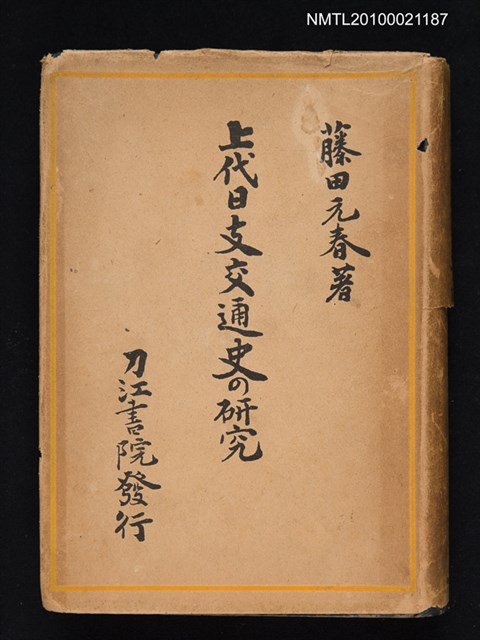 NMTL20100021187
藤田元春著
上代日支交通史の研究
刀江書院發行